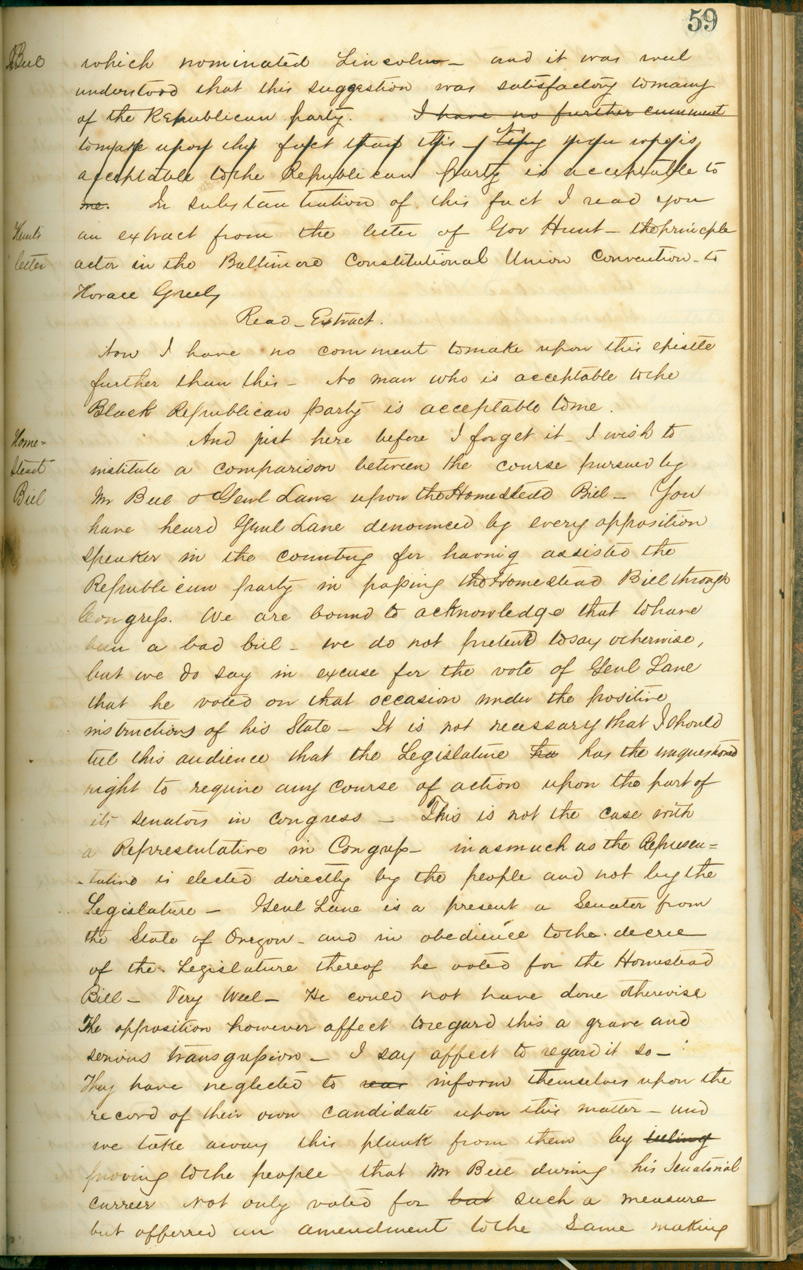 59
Bell
which nominated Lincoln - and it was well
understood that this suggestion was satisfactory to many
of the Republican party. I have no further comment
to make upon this fact than this - Any man who is
acceptable to the Republican party is acceptable to
me. In substantiation of this fact I read you
Hunts
an extract from the letter of Gov Hunt - the principle
letter
actor in the Baltimore Constitutional Union Convention - to
Horace Greely
Read - Extract.
Now I have no comment to make upon this epistle
further than this - No man who is acceptable to the
Black Republican party is acceptable to me.
Home-
And just here before I forget it - I wish to
stead
institute a comparison between the course pursued by
Bill
Mr Bell & Genl Lane upon the Homestead Bill - You
have heard Genl Lane denounced by every opposition
speaker in the country for having assisted the
Republican party in passing the Homestead Bill through
Congress. We are bound to acknowledge that to have
been a bad bill - we do not pretend to say otherwise,
but we do say in excuse for the vote of Genl Lane
that he voted on that occasion under the positive
instructions of his State - It is not necessary that I should
tell this audience that the Legislature has the unquestioned
right to require any course of action upon the part of
its senators in congress - This is not the case with
a Representative in Congress - inasmuch as the Represen=
-tative is elected directly by the people and not by the
Legislature - Genl Lane is a present a Senator from
the State of Oregon - and in obedience to the decree
of the Legislature thereof he voted for the Homestead
Bill - Very Well - He could not have done otherwise
The opposition however affect to regard this a grave and
serious transgression - I say affect to regard it so -
They have neglected to inform themselves upon the
record of their own candidate upon this matter - and
we take away this plank from them by
proving to the people that Mr Bell during his Senatorial
carreer not only voted for but such a measure
but offerred an amendment to the same making